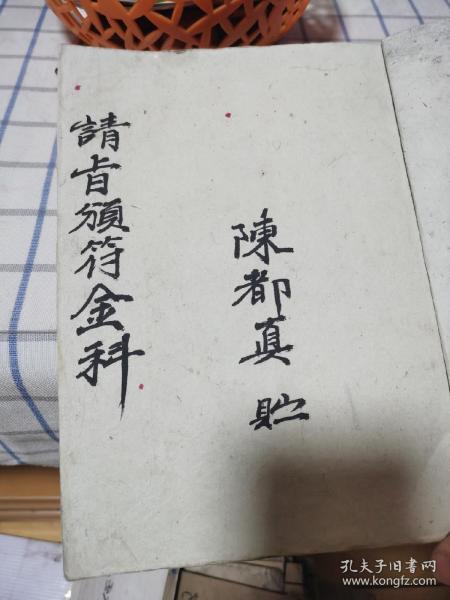 請旨頒符金科
陳都真 貯
孔夫子旧书网
www.kongfz.com